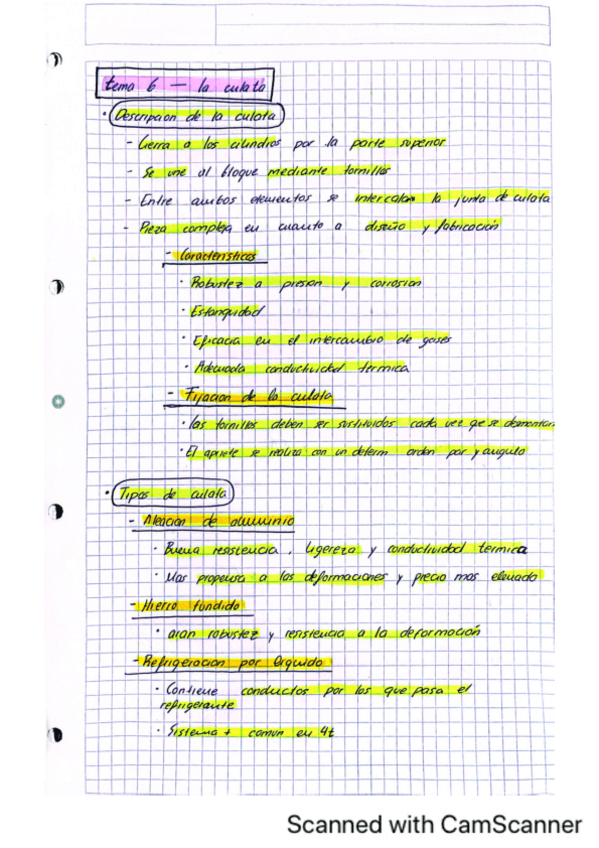 tema 6 — la culata
· Descripcion de la culata
- Cierra a los cilindros por la parte superior
- Se une al bloque mediante tornillos
- Entre ambos elementos se intercalan la junta de culata
- Pieza compleja en cuanto a diseño y fabricación
- Caracteristicas
· Robustez a presion y corrosion
· Estanquidad
· Eficacia en el intercambio de gases
· Adecuada conductividad termica
- Fijacion de la culata
· Los tornillos deben ser sustituidos cada vez que se desmontan
· El apriete se realiza con un determ orden par y angulo
· Tipos de culata
- Aleacion de aluminio
· Buena resistencia, ligereza y conductividad termica
· Mas propensa a las deformaciones y precio mas elevado
- Hierro fundido
· Gran robustez y resistencia a la deformación
- Refrigeracion por liquido
· Contiene conductos por los que pasa el
refrigerante
· Sistema + comun en 4t
Scanned with CamScanner